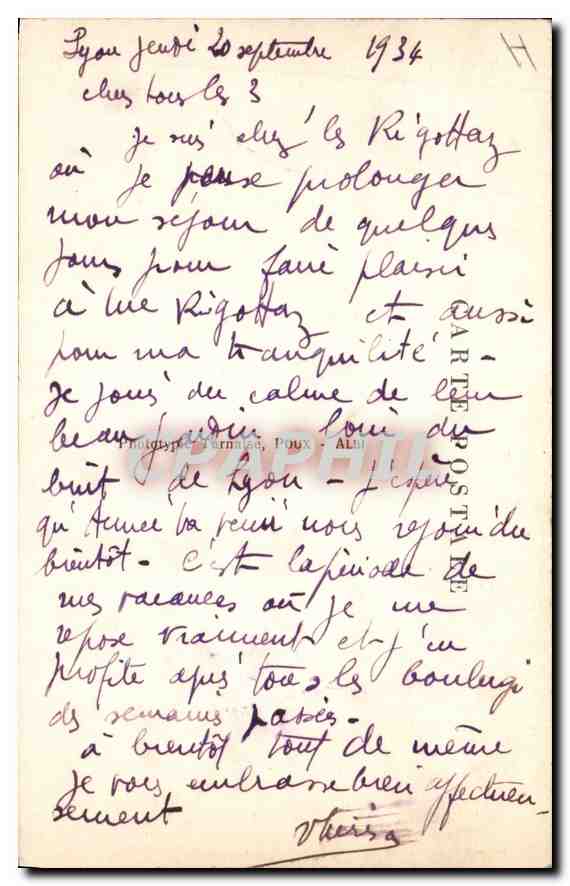 Lyon jeudi 20 septembre 1934
H
chers tous les 3
je suis chez les Rigottaz
où je pense prolonger
mon séjour de quelques
jours pour faire plaisir
à Mme Rigottaz et aussi
pour ma tranquilité -
Je jouis du calme de leur
beau jardin loin du
bruit de Lyon - J'espère
qu' va venir nous rejoindre
bientôt - C'est la période de
mes vacances où je me
repose vraiment et j'en
profite après tous les
des semaines passées -
à bientôt tout de même
je vous embrasse bien affectueu-
sement
CARTE POSTALE
Phototypie Tarnaise, POUX - ALBI
CPAPHIL